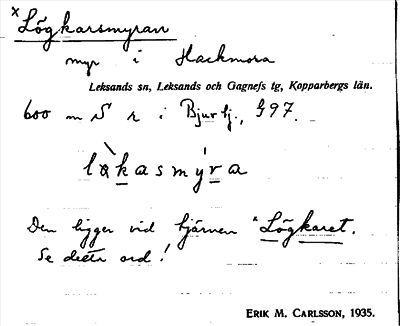 × Lögkarsmyran
myr i Hackmora
Leksands sn, Leksands och Gagnefs tg, Kopparbergs län.
600 m S r i Bjurtj., G 97.
lökasmyra
Den ligger vid tjärnen × Lögkaret.
Se detta ord!
ERIK M. CARLSSON, 1935.